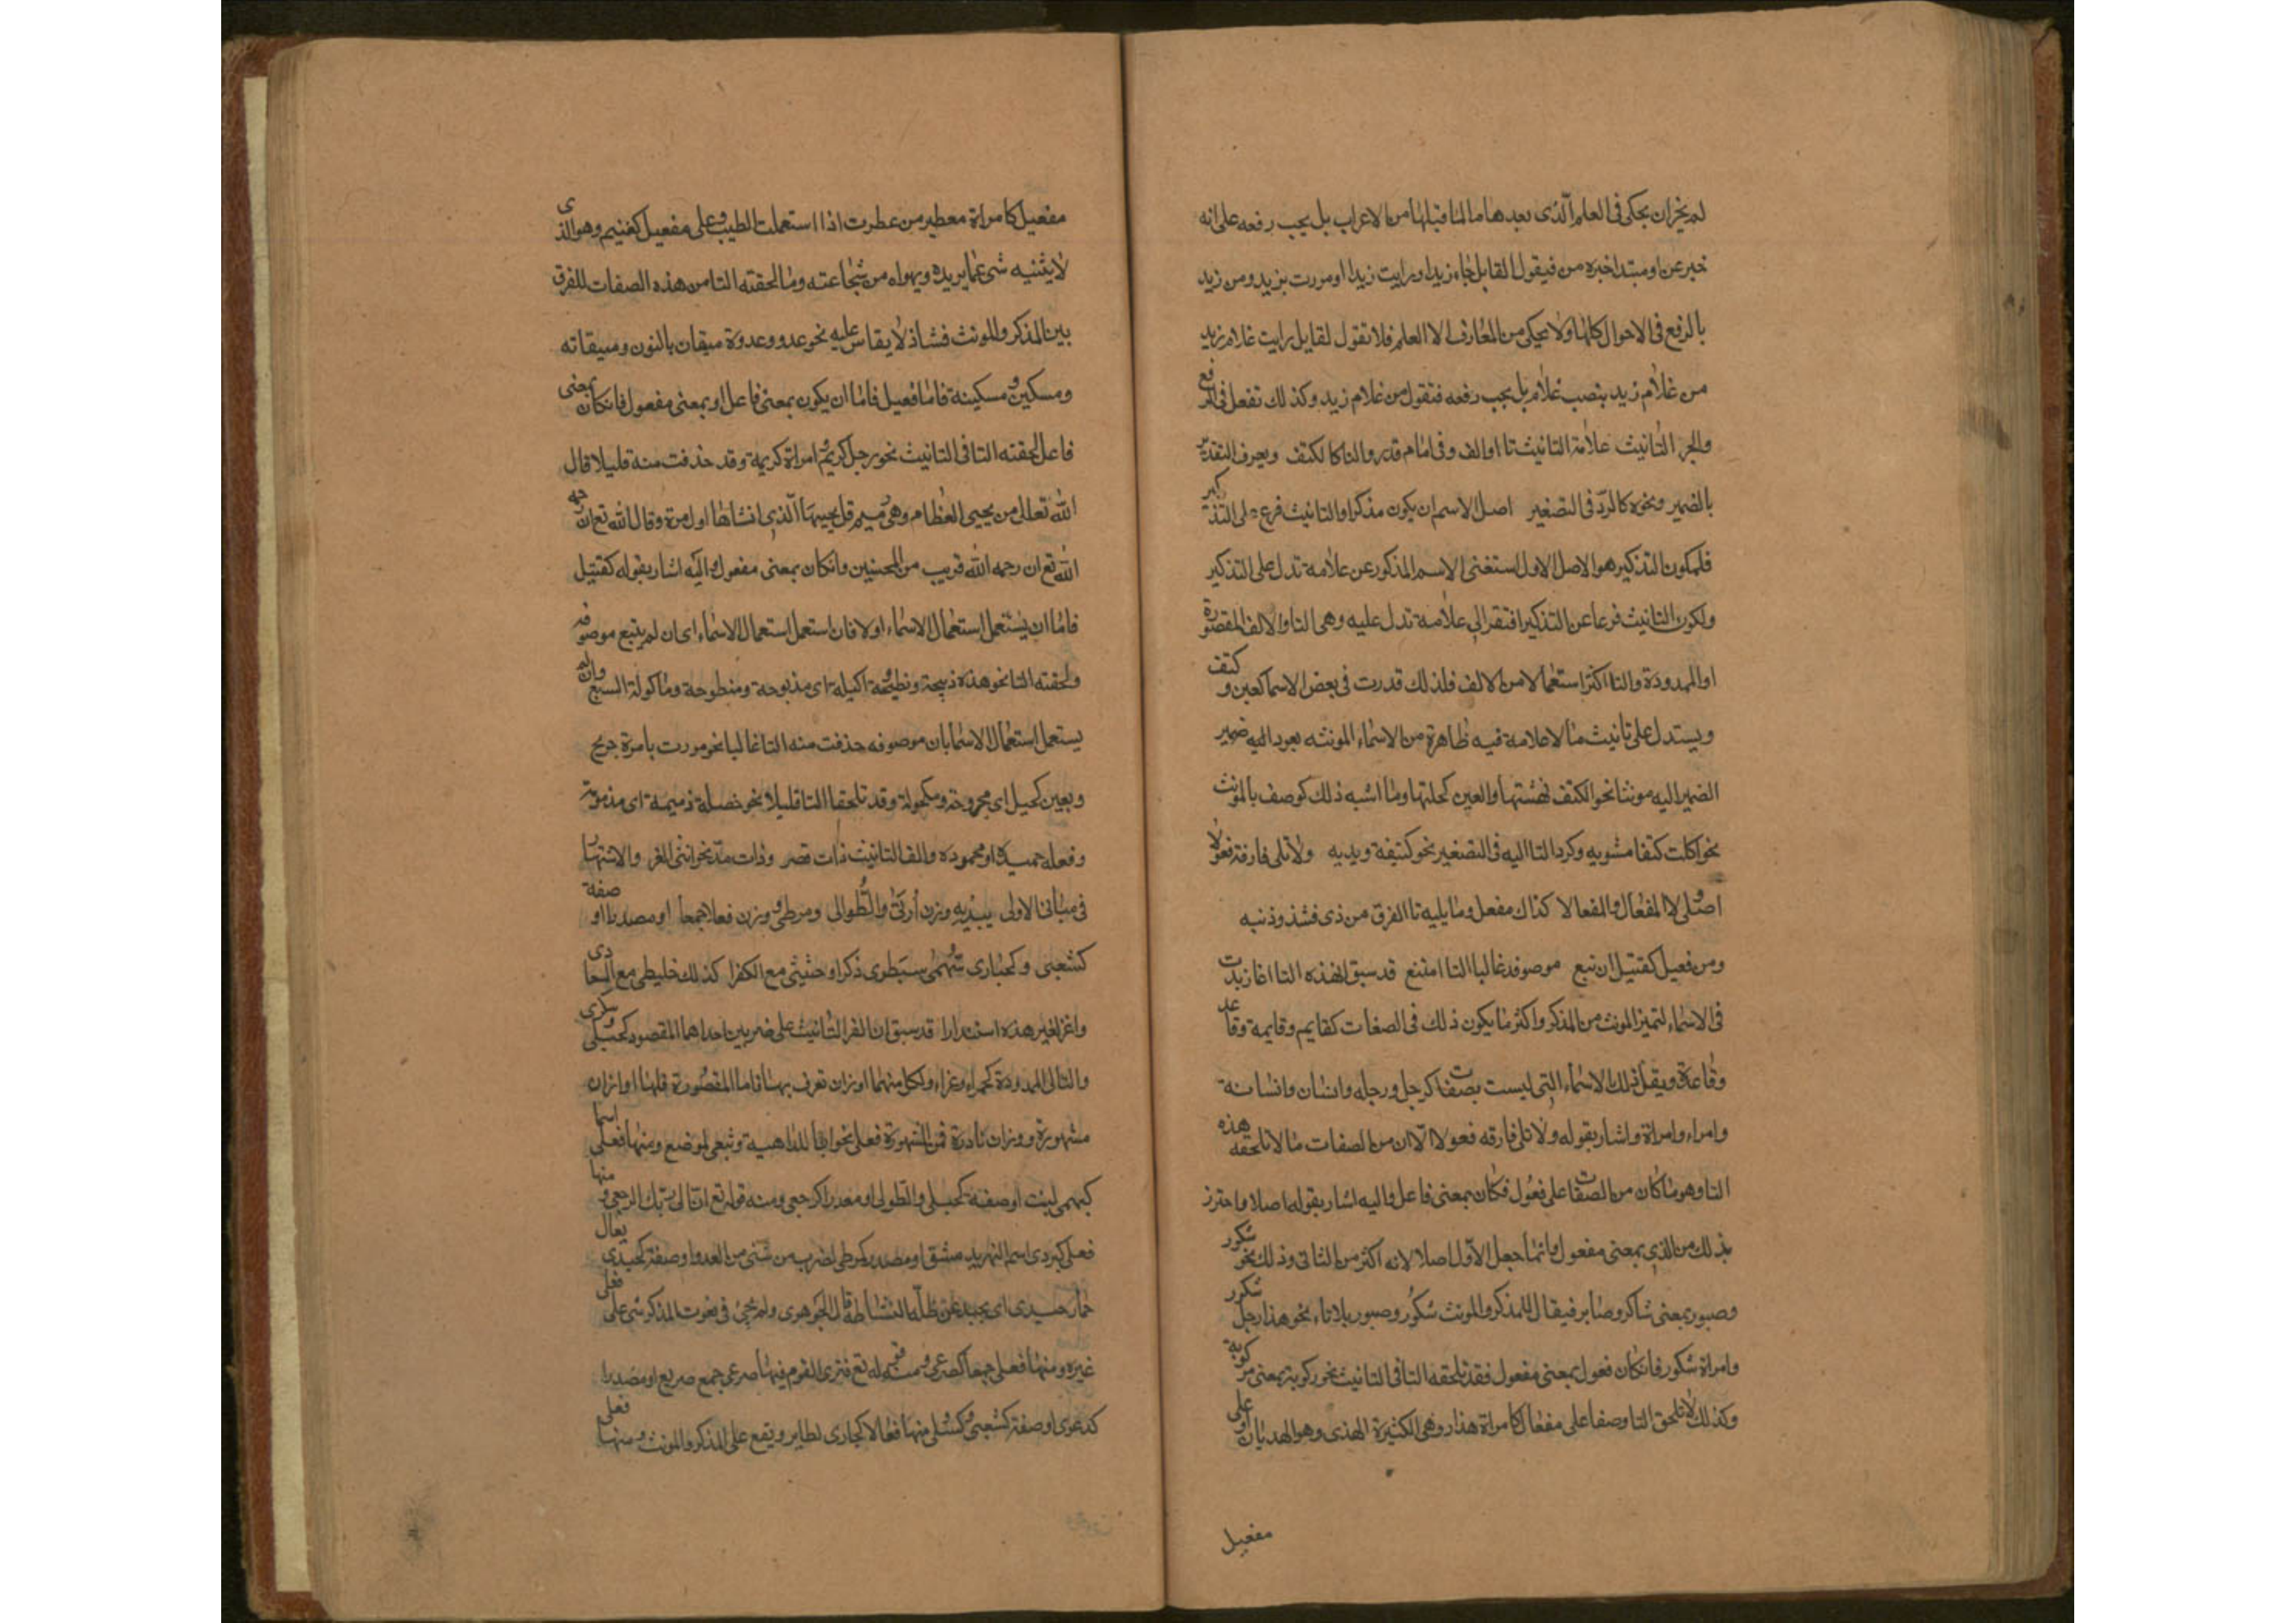 لم يخزان يحكى فى العلم الذى بعدها ما لما قبلها من الاعراب بل يجب رفعه على انه
خبر عن او مبتدا خبره من فيقول لقايل جاء زيد او رايت زيدا او مررت بزيد ومن زيد
بالرفع فى الاحوال كلها ولا يحكى من المعارف الا العلم فلا تقول لقايل رايت غلام زيد
من غلام زيد بنصب غلام بل يجب رفعه فتقول من غلام زيد وكذلك تفعل فى الرفع
والجر التانيث علامة التانيث تا او الف وفى اسام قدروا التا كالكتف ويعرف التقدير
بالضمير ونحوه كالرد فى التصغير اصل الاسم ان يكون مذكرا والتانيث فرع على التذكير
فلكون التذكير هو الاصل الاول استغنى الاسم المذكور عن علامة تدل على التذكير
ولكون التانيث فرعا عن التذكير افتقر الى علامة تدل عليه وهى التا والالف المقصورة
او الممدودة والتا اكثر استعمالا من الالف فلذلك قدرت فى بعض الاسما كعين وكتف
ويستدل على تانيث ما لا علامة فيه ظاهرة من الاسماء المونثه بعود اليه ضمير
الضمير اليه مونثا نحو الكتف نهشتها والعين كحلتها وما اشبه ذلك كوصف بالمونث
نحو اكلت كتفا مشويه وكرد التا اليه فى التصغير نحو كتيفة ويديه ولا تلى فارقة فعولا
اصلى ولا المفعال والمفعالا كذاك مفعل وما يليه تا الفرق من ذى فشذوذ نبه
ومن فعيل كقتيل ان تبع موصوفه غالبا التا امتنع قد سبق ان هذه التا انما زيدت
فى الاسماء لتميز المونث من المذكر واكثر ما يكون ذلك فى الصفات كقايم وقايمة وقاعد
وقاعدة ويقل ذلك الاسماء التى ليست بصفات كرجل ورجله وانسان وانسانة
وامراء وامراة واشار بقوله ولا تلى فارقه فعولا الا ان من الصفات ما لا تلحقه هذه
التا وهو ما كان من الصفات على فعول فكان بمعنى فاعل واليه اشار بقوله اصلا واحترز
بذلك من الذى بمعنى مفعول وانما جعل الاول اصلا لانه اكثر من الثانى وذلك نحو شكور
وصبور بمعنى شاكر وصابر فيقال للمذكر والمونث شكور وصبور بلا تاء نحو هذا رجل شكور
وامراة شكور فان كان فعول بمعنى مفعول فقد تلحقه التا فى التانيث نحو ركوبة بمعنى مركوبة
وكذلك لا تلحق التا وصفا على مفعال كامراة هذار وهى الكثيرة الهذى وهو الهديان او على
مفعيل
مفعيل كامراة معطير من عطرت اذا استعملت الطيب وعلى مفعيل كغنيم وهو الذى
لا يثنيه شى عما يريده ويهواه من شجاعته وما لحقته التا من هذه الصفات للفرق
بين المذكر والمونث فشاذ لا يقاس عليه نحو عدو وعدوة ميقان بالنون وميقاته
ومسكين ومسكينة فاما فعيل فاما ان يكون بمعنى فاعل او بمعنى مفعول فان كان بمعنى
فاعل لحقته التا فى التانيث نحو رجل كريم وامراة كريمة وقد حذفت منه قليلا قال
الله تعالى من يحيى العظام وهى رميم قل يحييها الذى انشاها اول مرة وقال الله تع ان رحمه
الله تع ان رحمه الله قريب من المحسنين وان كان بمعنى مفعول واليه اشار بقوله كقتيل
فاما ان يستعمل استعمال الاسماء اولا فان استعمل استعمال الاسماء اى ان لم يتبع موصوفه
ولحقته التا نحو هذه ذبيحة ونطيحة اكيله اى مذبوحة ومنطوحة وماكولة السبع وان لم
يستعمل استعمال الاسما بان موصوفه حذفت منه التا غالبا نحو مررت بامرة جريح
وبعين كحيل اى مجروحة ومكحولة وقد تلحقها التا قليلا نحو خصلة ذميمة اى مذمومة
وفعله حميدة او محموده والف التانيث ذات قصر وذات مد نحو انثى الغر والاشتهار
فى مبانى الاولى يبديه وزن اربى والطولى ومرطى ووزن فعلا جمعا او مصدرا او صفة
كشعبى وكحبارى سمهى سبطوى ذكرا وحثيثى مع الكفرا كذلك خليطى مع الحادى
واعز لغير هذه استندارا قد سبق ان الف التانيث على ضربين احداهما المقصود كحبلى وسكرى
والثانى الممدودة كحمراء وغراء ولكل منهما اوزان تعرف بها فاما المقصورة فلها اوزان
مشهورة ووزان نادرة فمن المشهورة فعلى نحو اربا للداهية وشعبى لموضع ومنها فعلى اسما
كبهمى لبنت او صفة كحبلى والطولى او مصدرا كرجعى ومنه قوله تع ان الى ربك الرجعى ومنها
فعلى كبردى اسم لنهر يد مشق او مصدر كمرطى لضرب من شنى من العدو او صفة كحيدى يقال
حمار حيدى اى يحيد عن ظله لنشاطه قال الجوهرى ولم يجئ فى نعوت المذكر شى على فعلى
غيره ومنها فعلى جمعا كصرعى ومنه قوله تع فترى القوم فيها صرعى جمع صريع او مصدرا
كدعوى او صفة كشبعى وكسلى ومنها فعالا كحبارى لطاير ويقع على المذكر والمونث ومنها فعلى